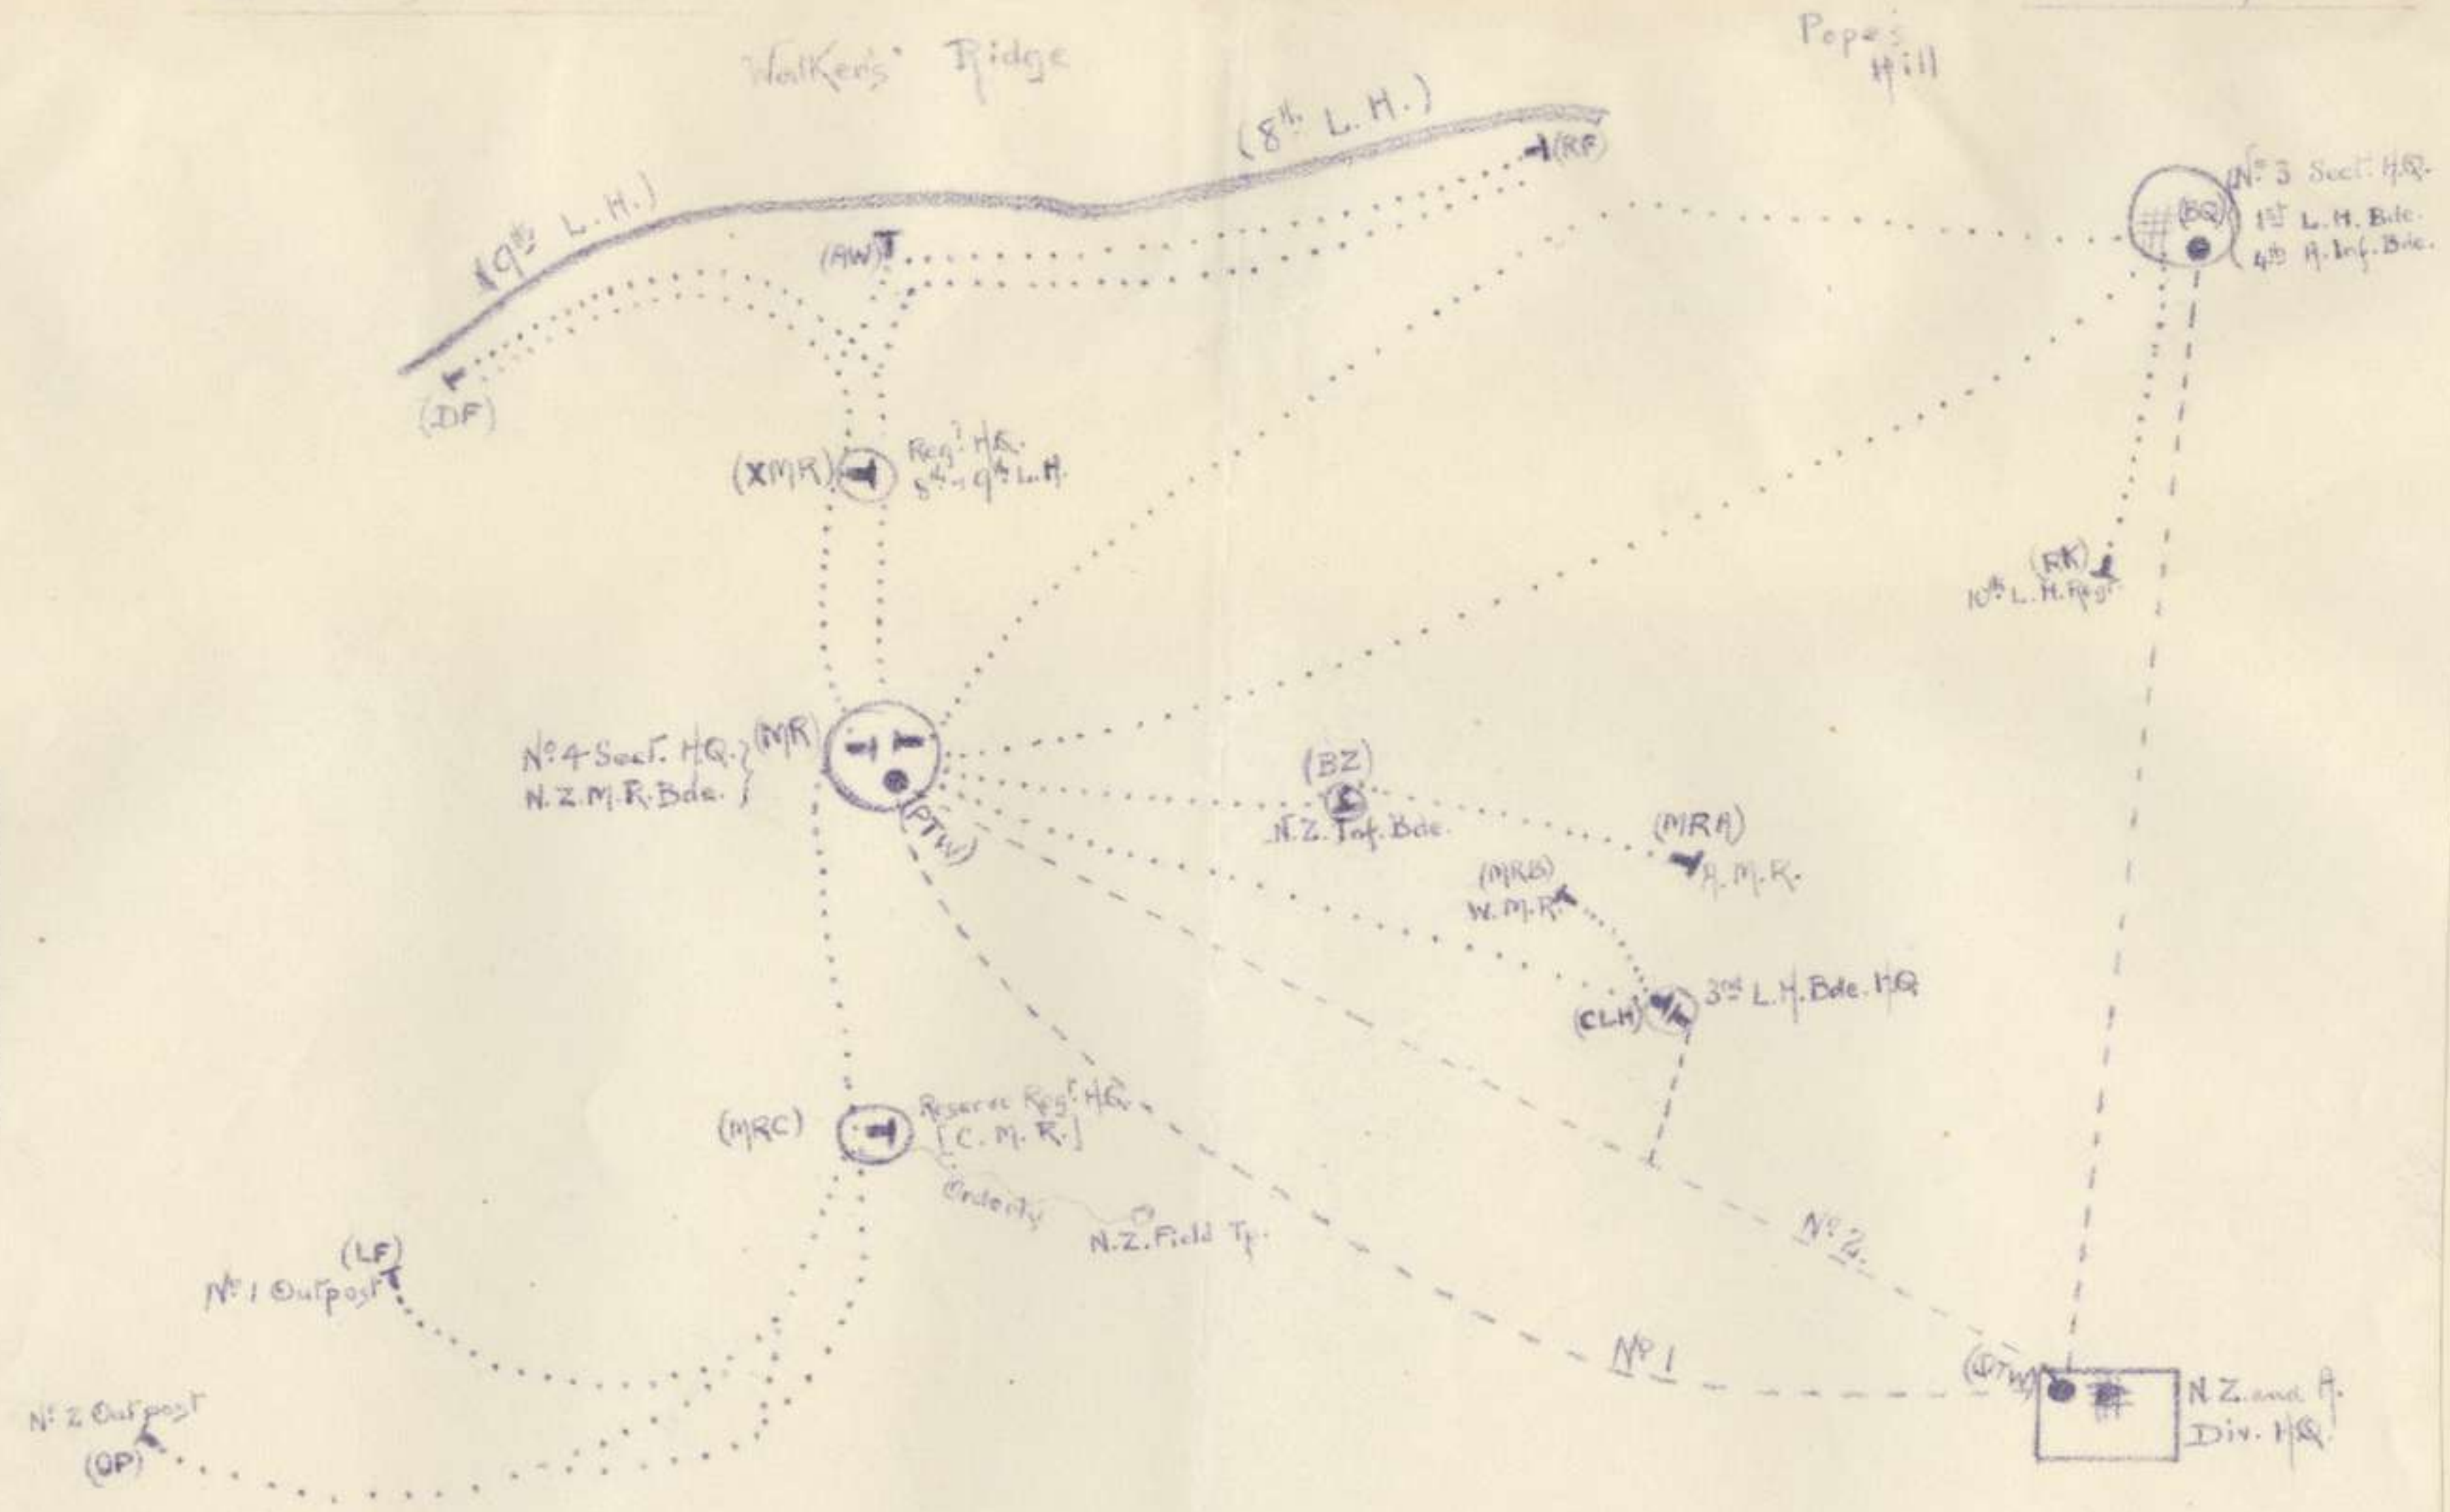 Walker's Ridge
Pope's
Hill
(8th L.H.)
(RF)
(9th L.H.)
(AW)
(DF)
(BQ)
No 3 Sect. H.Q.
1st L.H. Bde.
4th A. Inf. Bde.
(XMR)
Regt. H.Q.
8th - 9th L.H.
(RK)
10th L.H. Regt.
No 4 Sect. H.Q.
N.Z.M.R. Bde.
(MR)
(PTW)
(BZ)
N.Z. Inf. Bde.
(MRA)
A.M.R.
(MRB)
W.M.R.
(CLH)
3rd L.H. Bde. HQ
(MRC)
Reserve Regt. H.Q.
[C.M.R.]
Orderly
N.Z. Field Tp.
(LF)
No 1 Outpost
No 2 Outpost
(OP)
No 2.
No 1
N.Z. and A.
Div. HQ.